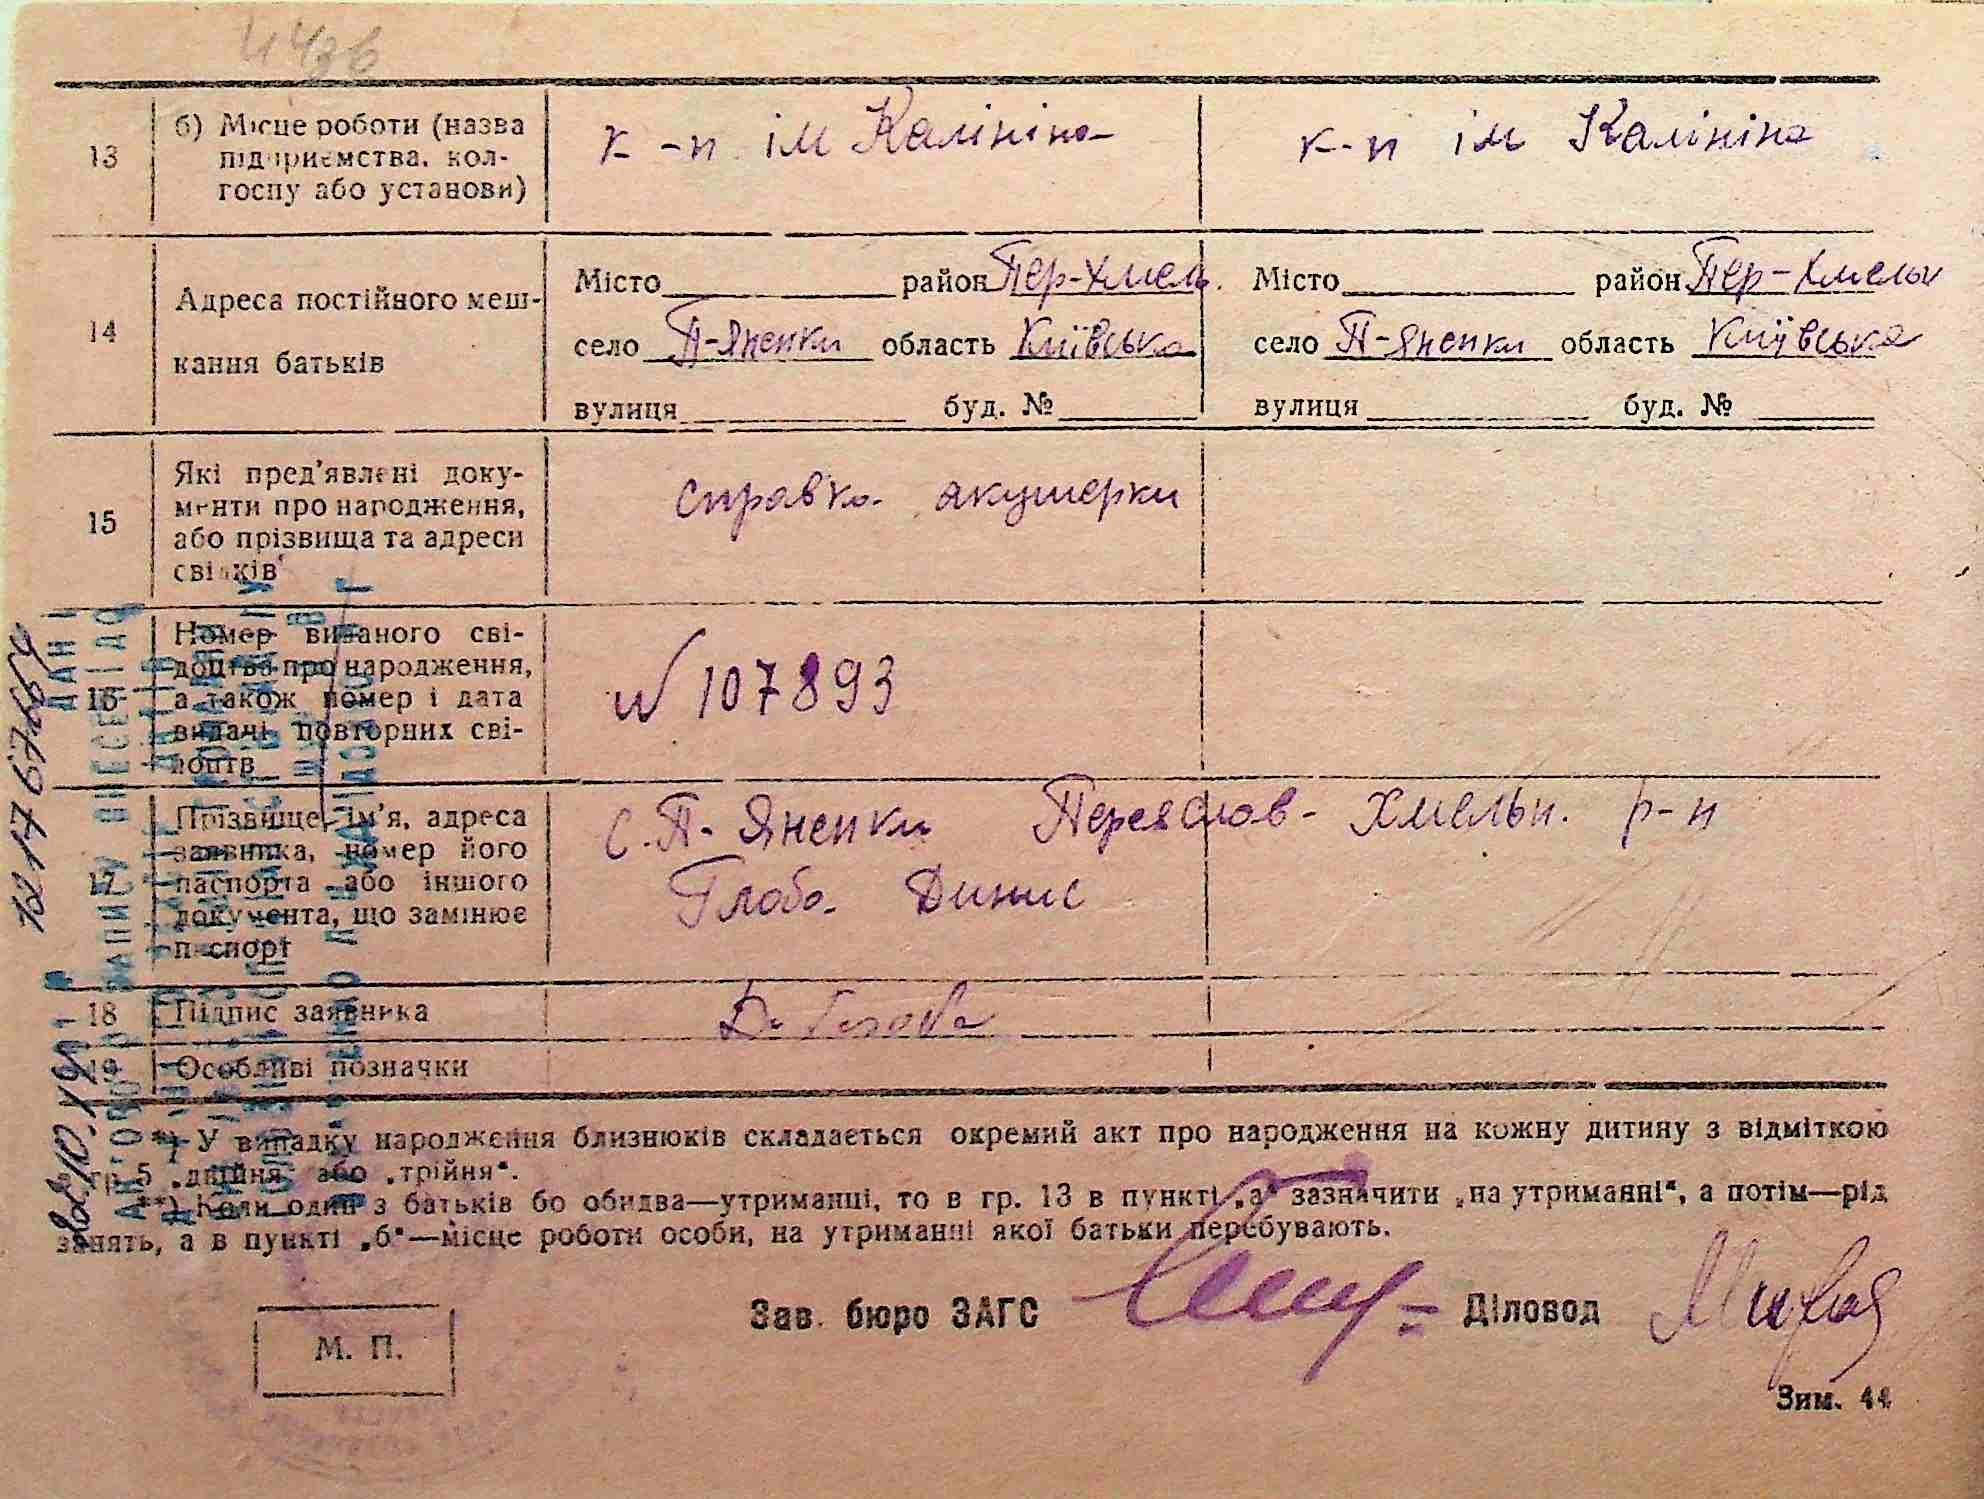 13
б) Місце роботи (назва
підприємства, кол-
госпу або установи)
к-п ім Калініна
к-п ім Калініна
14
Адреса постійного меш-
кання батьків
Місто район Пер-Хмель.
село П-Яненки область Київська
вулиця буд. №
Місто район Пер-Хмельн
село П-Яненки область Київська
вулиця буд. №
15
Які пред'явлені доку-
менти про народження,
або прізвища та адреси
свідків
справка акушерки
16
Номер виданого сві-
доцтва про народження,
а також номер і дата
видачі повторних сві-
доцтв
N 107893
17
Прізвище, ім'я, адреса
заявника, номер його
паспорта або іншого
документа, що замінює
паспорт
с. П-Яненки Переяслав-Хмельн. р-н
Глоба Динис
18
Підпис заявника
19
Особливі позначки
*) У випадку народження близнюків складається окремий акт про народження на кожну дитину з відміткою
гр. 5 „двійня“ або „трійня“.
**) Коли один з батьків бо обидва—утриманці, то в гр. 13 в пункті „а“ зазначити „на утриманні“, а потім—рід
занять, а в пункті „б“—місце роботи особи, на утриманні якої батьки перебувають.
Зав. бюро ЗАГС
Діловод
М. П.
Зим. 44